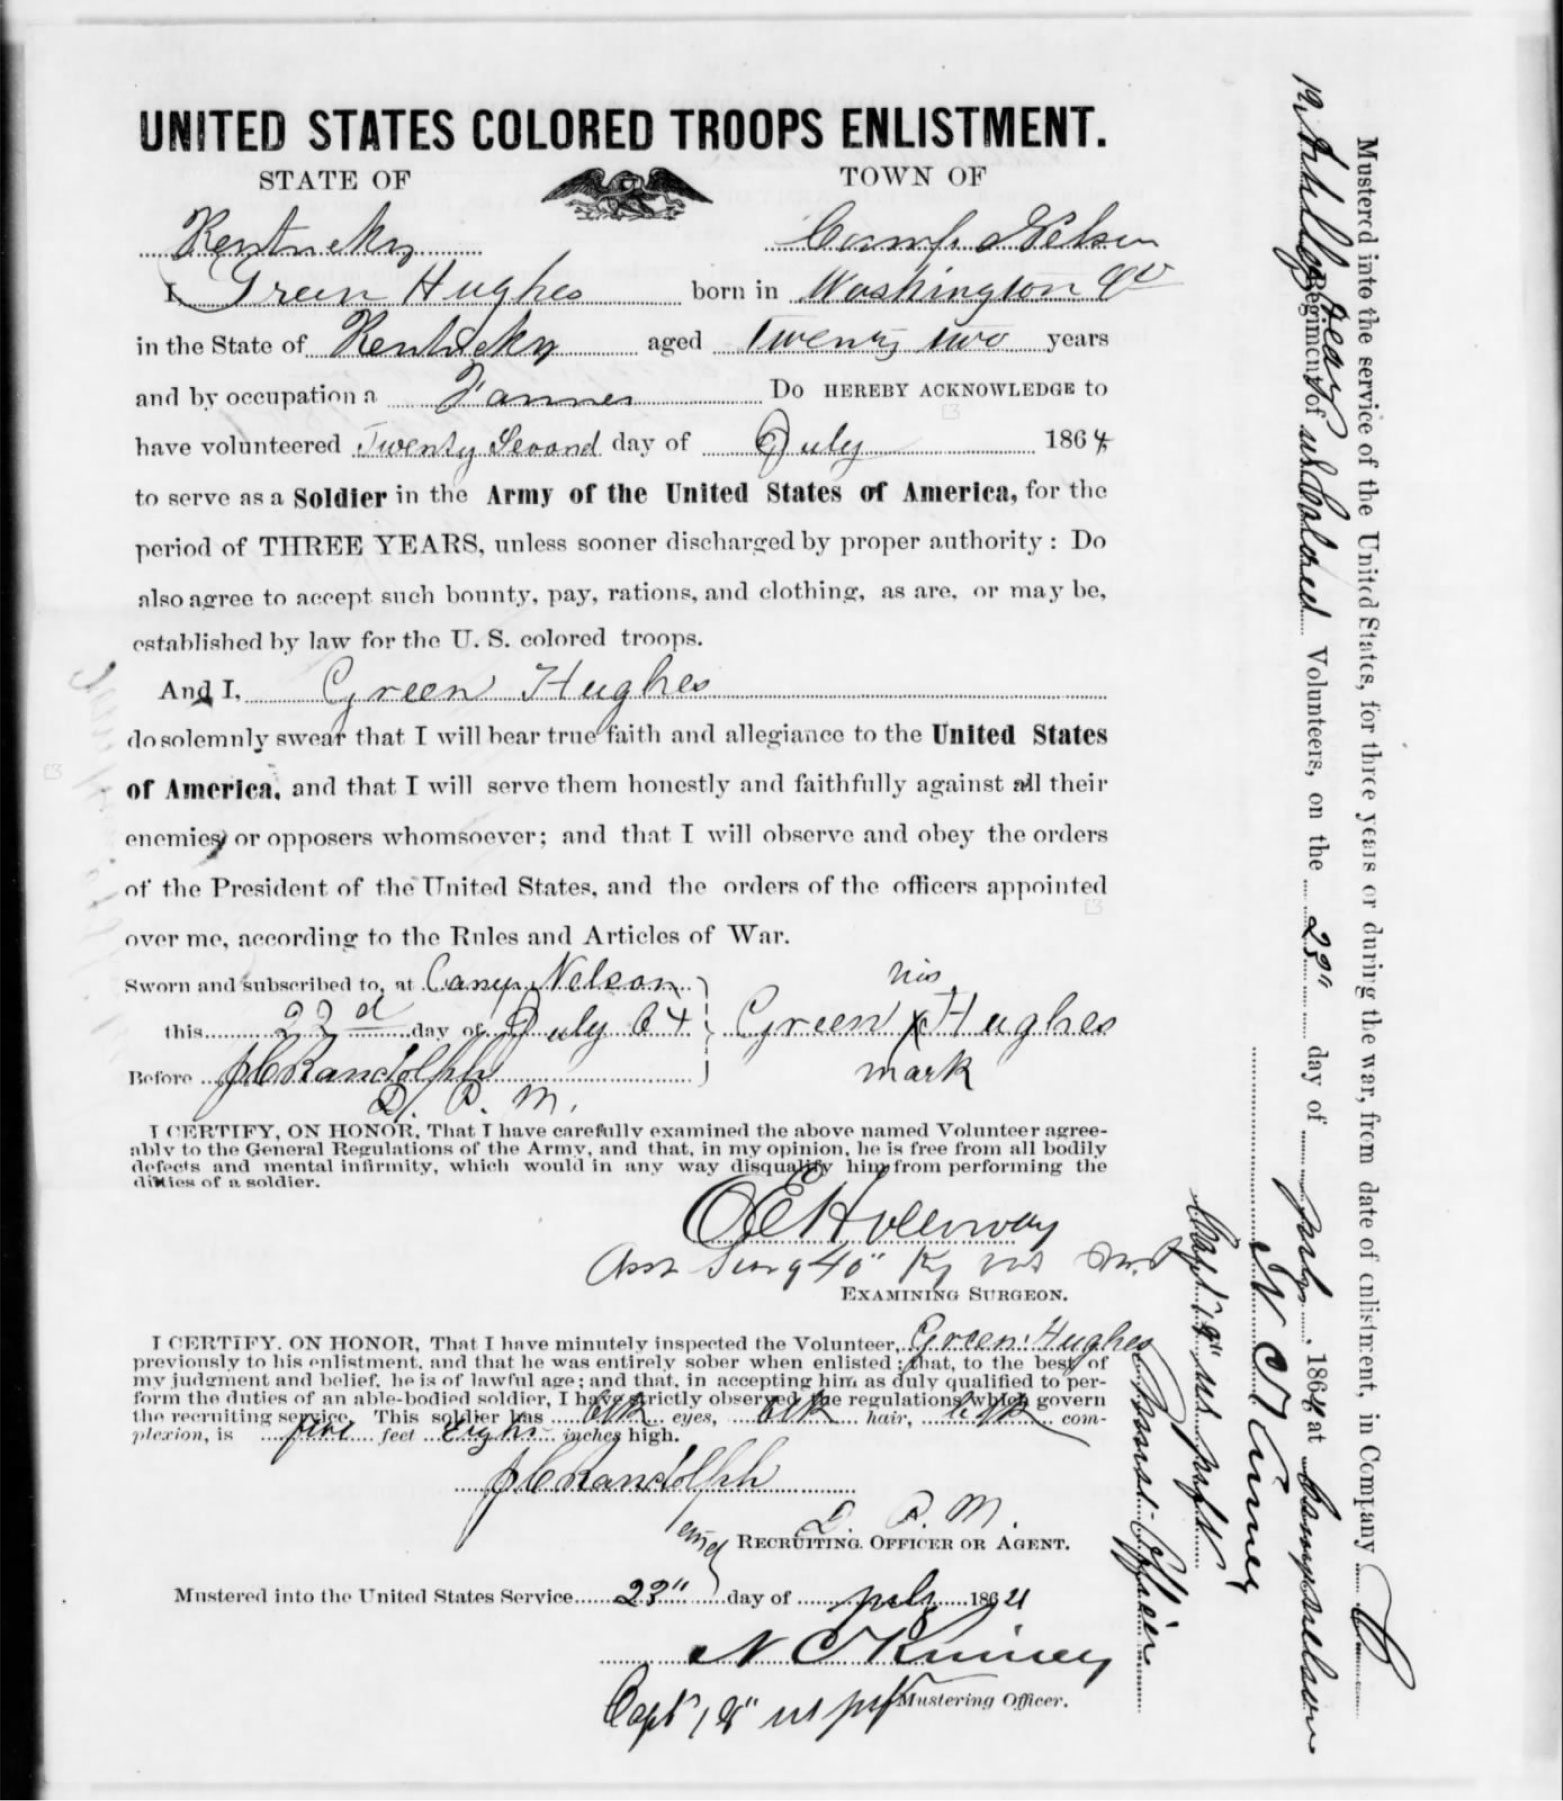 UNITED STATES COLORED TROOPS ENLISTMENT.
STATE OF TOWN OF
Kentucky Camp Nelson
I, Green Hughes born in Washington Co
in the State of Kentucky aged Twenty two years
and by occupation a Farmer Do HEREBY ACKNOWLEDGE to
have volunteered Twenty Second day of July 1864
to serve as a Soldier in the Army of the United States of America, for the
period of THREE YEARS, unless sooner discharged by proper authority: Do
also agree to accept such bounty, pay, rations, and clothing, as are, or may be,
established by law for the U. S. colored troops.
And I, Green Hughes
do solemnly swear that I will bear true faith and allegiance to the United States
of America, and that I will serve them honestly and faithfully against all their
enemies or opposers whomsoever; and that I will observe and obey the orders
of the President of the United States, and the orders of the officers appointed
over me, according to the Rules and Articles of War.
Sworn and subscribed to, at Camp Nelson his
this 22d day of July 64 Green X Hughes
Before JC Randolph mark
D. P. M.
I CERTIFY, ON HONOR, That I have carefully examined the above named Volunteer agree-
ably to the General Regulations of the Army, and that, in my opinion, he is free from all bodily
defects and mental infirmity, which would in any way disqualify him from performing the
duties of a soldier.
Asst Surg 40" Ky
EXAMINING SURGEON.
I CERTIFY, ON HONOR, That I have minutely inspected the Volunteer, Green Hughes
previously to his enlistment, and that he was entirely sober when enlisted; that, to the best of
my judgment and belief, he is of lawful age; and that, in accepting him as duly qualified to per-
form the duties of an able-bodied soldier, I have strictly observed the regulations which govern
the recruiting service. This soldier has blk eyes, blk hair, blk com-
plexion, is five feet Eight inches high.
JC Randolph
D. P. M.
RECRUITING OFFICER OR AGENT.
Mustered into the United States Service 23" day of July 1864
N C Kinney
Capt 18" US Inf
Mustering Officer.
Mustered into the service of the United States, for three years or during the war, from date of enlistment, in Company C
12 Arty Heavy Regiment of US Colored Volunteers, on the 23" day of July, 1864 at Camp Nelson
N C Kinney
Capt 18" US Inf
Officer